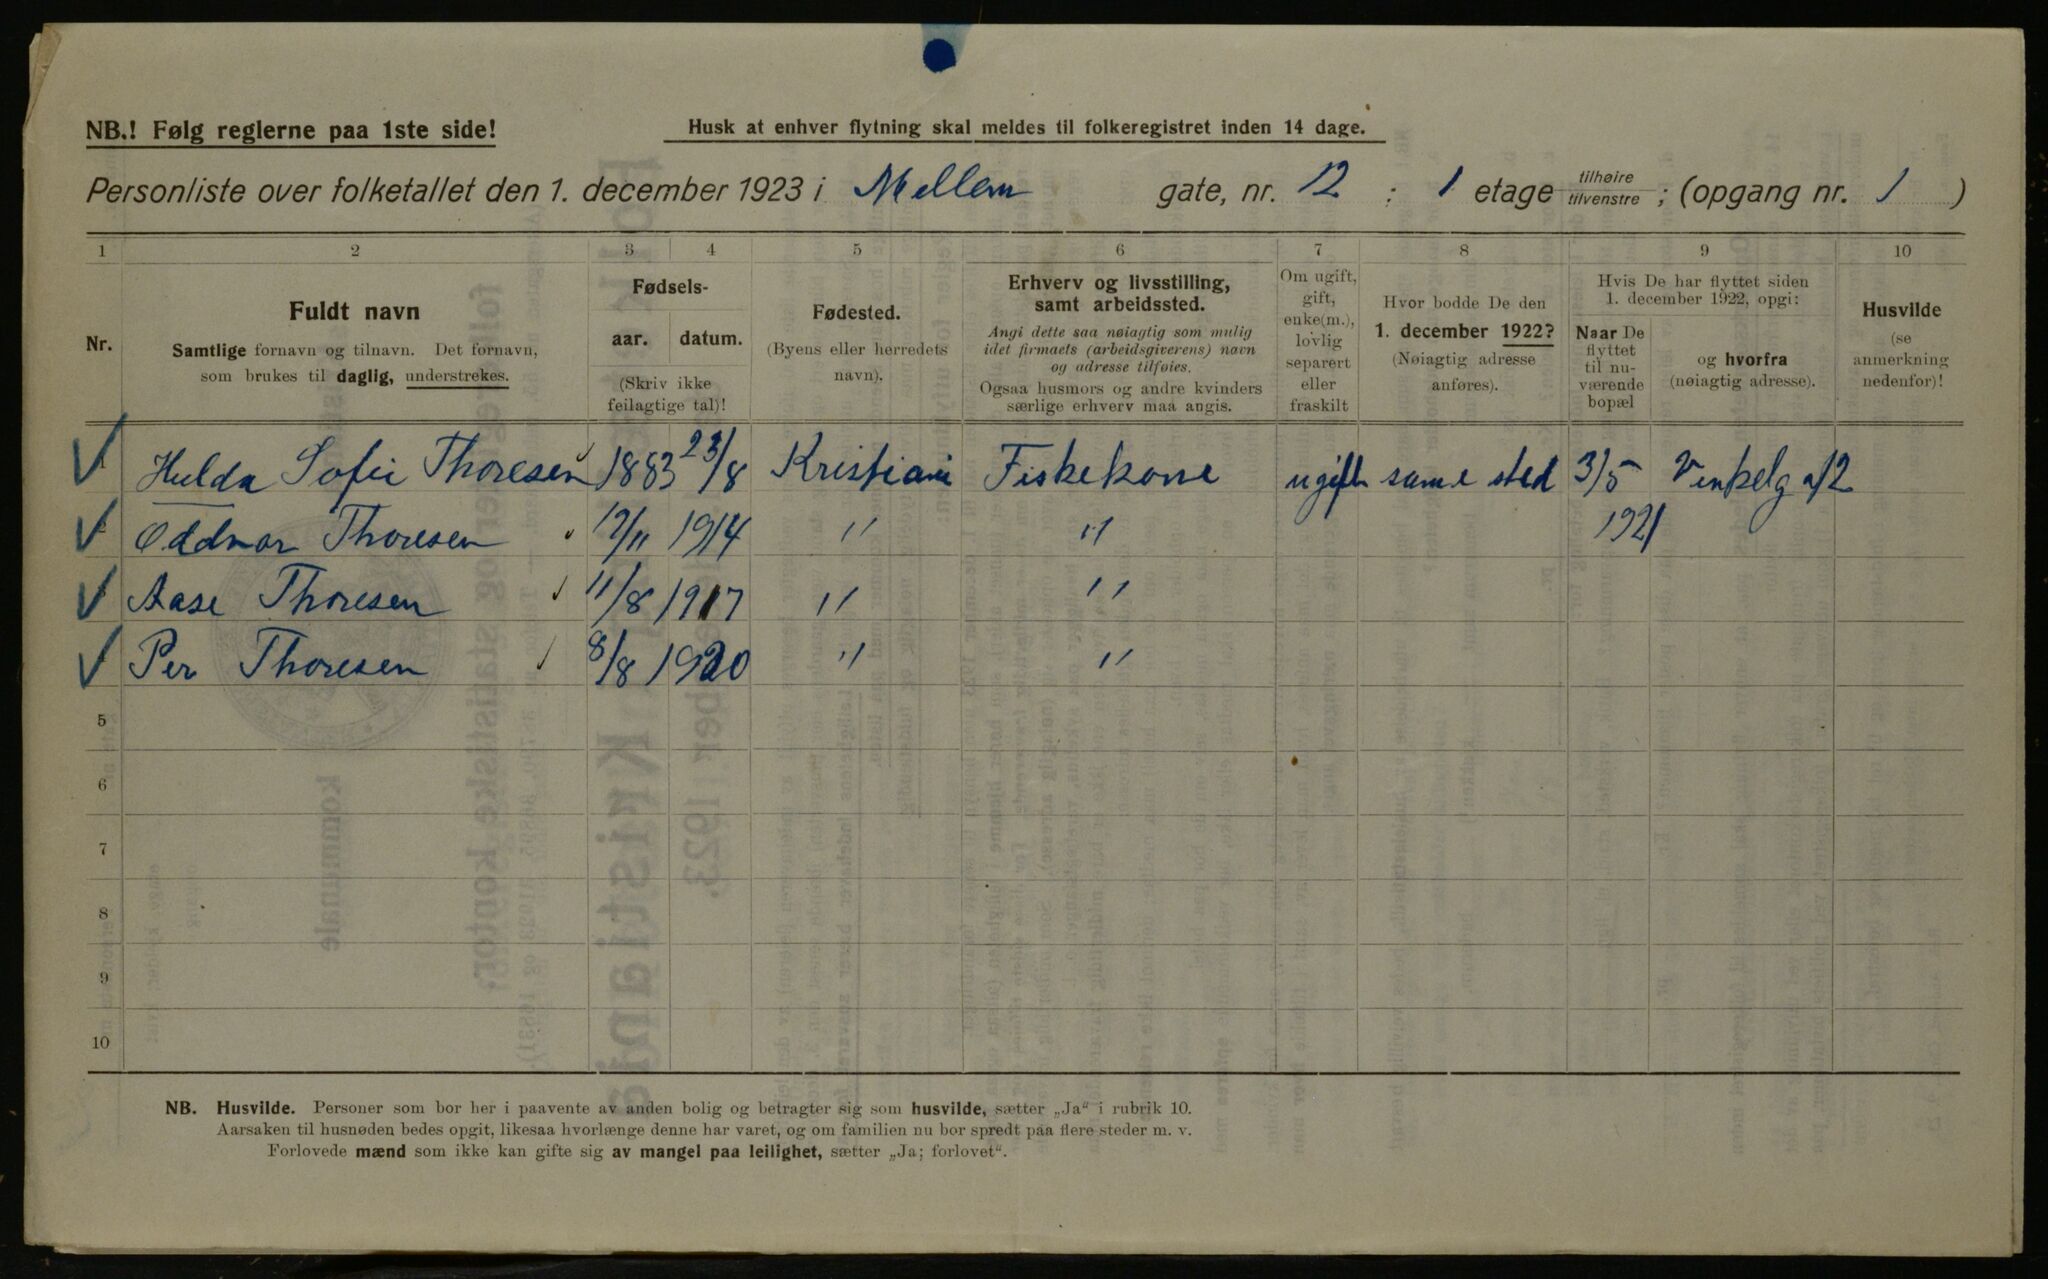 NB.! Følg reglerne paa 1ste side!
Husk at enhver flytning skal meldes til folkeregistret inden 14 dage.
Personliste over folketallet den 1. december 1923 i Mellem gate, nr. 12 : 1 etage tilhøire tilvenstre ; (opgang nr. 1 )
1 2 3 4 5 6 7 8 9 10
Nr.
Fuldt navn
Samtlige fornavn og tilnavn. Det fornavn,
som brukes til daglig, understrekes.
Fødsels-
aar. datum.
(Skriv ikke
feilagtige tal)!
Fødested.
(Byens eller herredets
navn).
Erhverv og livsstilling,
samt arbeidssted.
Angi dette saa nøiagtig som mulig
idet firmaets (arbeidsgiverens) navn
og adresse tilføies.
Ogsaa husmors og andre kvinders
særlige erhverv maa angis.
Om ugift,
gift,
enke(m.),
lovlig
separert
eller
fraskilt
Hvor bodde De den
1. december 1922?
(Nøiagtig adresse
anføres).
Hvis De har flyttet siden
1. december 1922, opgi:
Naar De
flyttet
til nu-
værende
bopæl
og hvorfra
(nøiagtig adresse).
Husvilde
(se
anmerkning
nedenfor)!
Hulda Sofie Thoresen 1883 23/8 Kristiania Fiskekone ugift same sted 3/5 Vinkelg 12
Oddvar Thoresen 17/11 1914 " " 1921
Aase Thoresen 11/8 1917 " "
Per Thoresen 8/8 1920 " "
5
6
7
8
9
10
NB. Husvilde. Personer som bor her i paavente av anden bolig og betragter sig som husvilde, sætter „Ja“ i rubrik 10.
Aarsaken til husnøden bedes opgit, likesaa hvorlænge denne har varet, og om familien nu bor spredt paa flere steder m. v.
Forlovede mænd som ikke kan gifte sig av mangel paa leilighet, sætter „Ja; forlovet“.